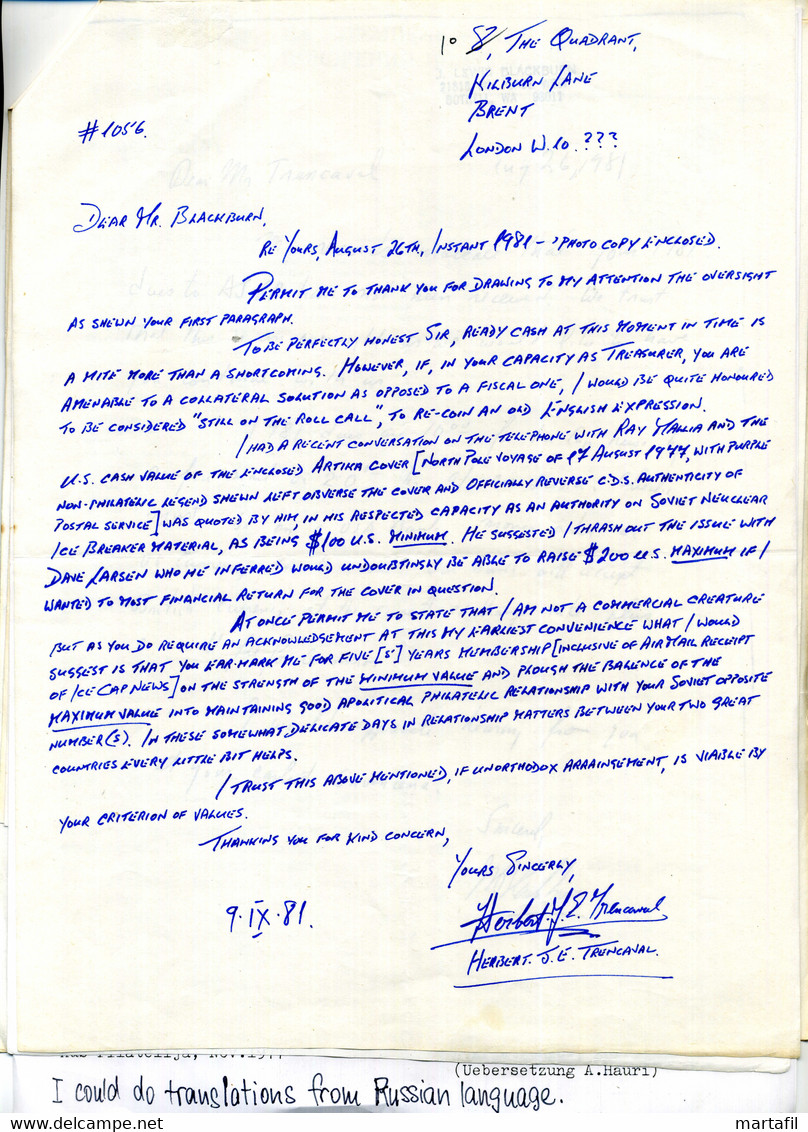 10 8, The Quadrant,
Kilburn Lane
Brent
London W.10. ???
#1056.
Dear Mr. Blackburn,
Re Yours, August 26th, Instant 1981 - Photo copy enclosed.
Permit me to thank you for drawing to my attention the oversight
as shewn your first paragraph.
To be perfectly honest, Sir, ready cash at this moment in time is
a mite more than a shortcoming. However, if, in your capacity as Treasurer, you are
amenable to a collateral solution as opposed to a fiscal one, I would be quite honoured
to be considered "still on the roll call", to re-coin an old English expression.
I had a recent conversation on the telephone with Ray Malia and the
U.S. cash value of the enclosed Artika cover [North Pole voyage of 17 August 1977, with purple
non-philatelic legend shewn left obverse the cover and officially reverse c.d.s. authenticity of
postal service] was quoted by him, in his respected capacity as an authority on Soviet Neuclear
Ice Breaker material, as being $100 U.S. minimum. He suggested I thrash out the issue with
Dave Larsen who he inferred would undoubtingly be able to raise $200 U.S. maximum if I
wanted to most financial return for the cover in question.
At once permit me to state that I am not a commercial creature
but as you do require an acknowledgement at this my earliest convenience what I would
suggest is that you ear-mark me for five [5] years membership [inclusive of air mail receipt
of Ice Cap News] on the strength of the minimum value and plough the balence of the
maximum value into maintaining good apolitical philatelic relationship with your Soviet opposite
number(s). In these somewhat delicate days in relationship matters between your two great
countries every little bit helps.
I trust this above mentioned, if unorthodox arraingement, is viable by
your criterion of values.
Thanking you for kind concern,
Yours Sincerly,
Herbert. J. E. Trencaval.
9.IX.81.
Herbert. J. E. Trencaval.
(Uebersetzung A.Hauri)
I could do translations from Russian language.
martafil